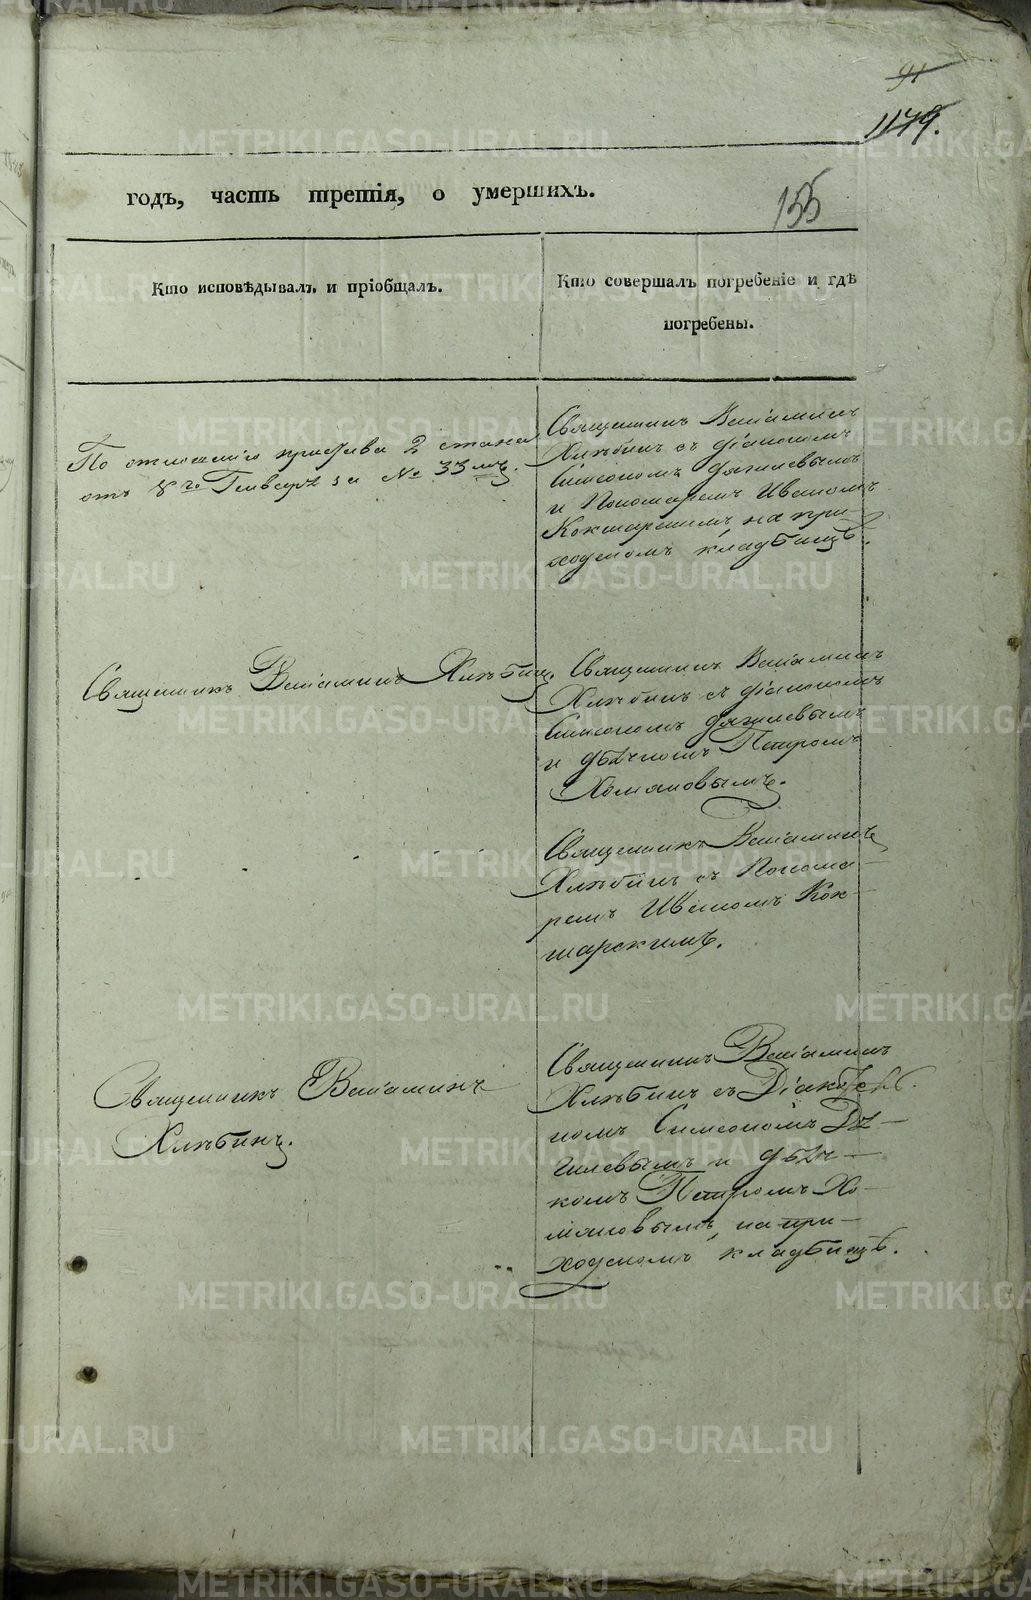 91
1149.
годъ, часть третія, о умершихъ.
155
Кто исповѣдывалъ и пріобщалъ.
Кто совершалъ погребеніе и гдѣ
погребены.
По отношенію пристава 2 стана
отъ 8го Генваря за № 33мъ.
Священникъ Веніаминъ
Хлѣбинъ съ діакономъ
Симеономъ Дягилевымъ
и Пономаремъ Иваномъ
Кокшарскимъ, на при-
ходскомъ кладбищѣ.
Священникъ Веніаминъ Хлѣбинъ.
Священникъ Веніаминъ
Хлѣбинъ съ діакономъ
Симеономъ Дягилевымъ
и дьячкомъ Петромъ
Хомяковымъ.
Священникъ Веніаминъ
Хлѣбинъ съ Понома-
ремъ Иваномъ Кок-
шарскимъ.
Священникъ Веніаминъ
Хлѣбинъ.
Священникъ Веніаминъ
Хлѣбинъ съ
номъ Симеономъ Дя-
гилевымъ и дьяч-
комъ Петромъ Хо-
мяковымъ, на при-
ходскомъ кладбищѣ.
METRIKI.GASO-URAL.RU